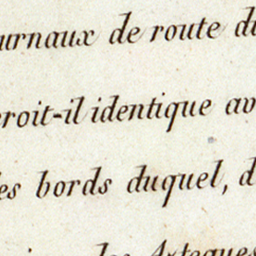 urnaux de route du
eroit-il identique av
es bords duquel, d
les Azteques